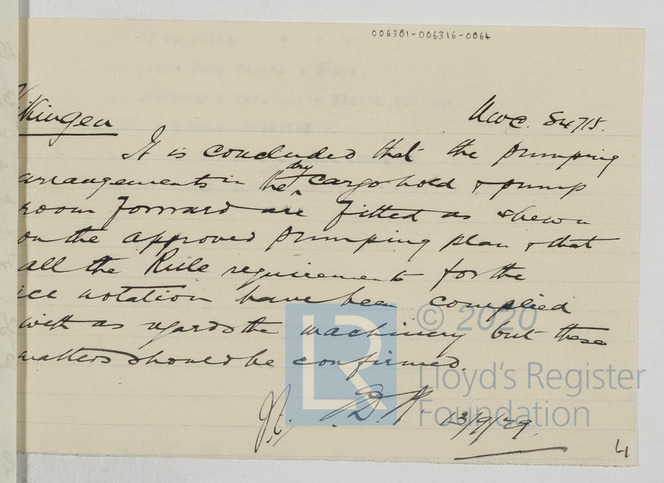 006301-006316-0064
Nwc. 84715.
It is concluded that the pumping
arrangements in the dry cargo hold & pump
room forward are fitted as shewn
on the approved pumping plan & that
all the Rule requirements for the
ice notation have been complied
with as regards the machinery but these
matters should be confirmed.
13/9/29.
4
© 2020
LR
Lloyd's Register
Foundation